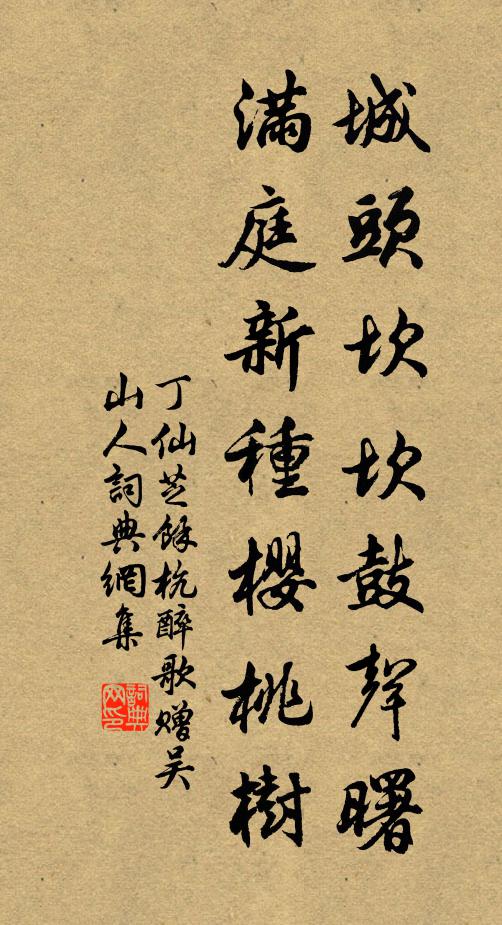 城頭坎坎鼓聲曙
滿庭新種櫻桃樹
丁仙芝餘杭醉歌贈吳
山人詞典網集
詞典
网印